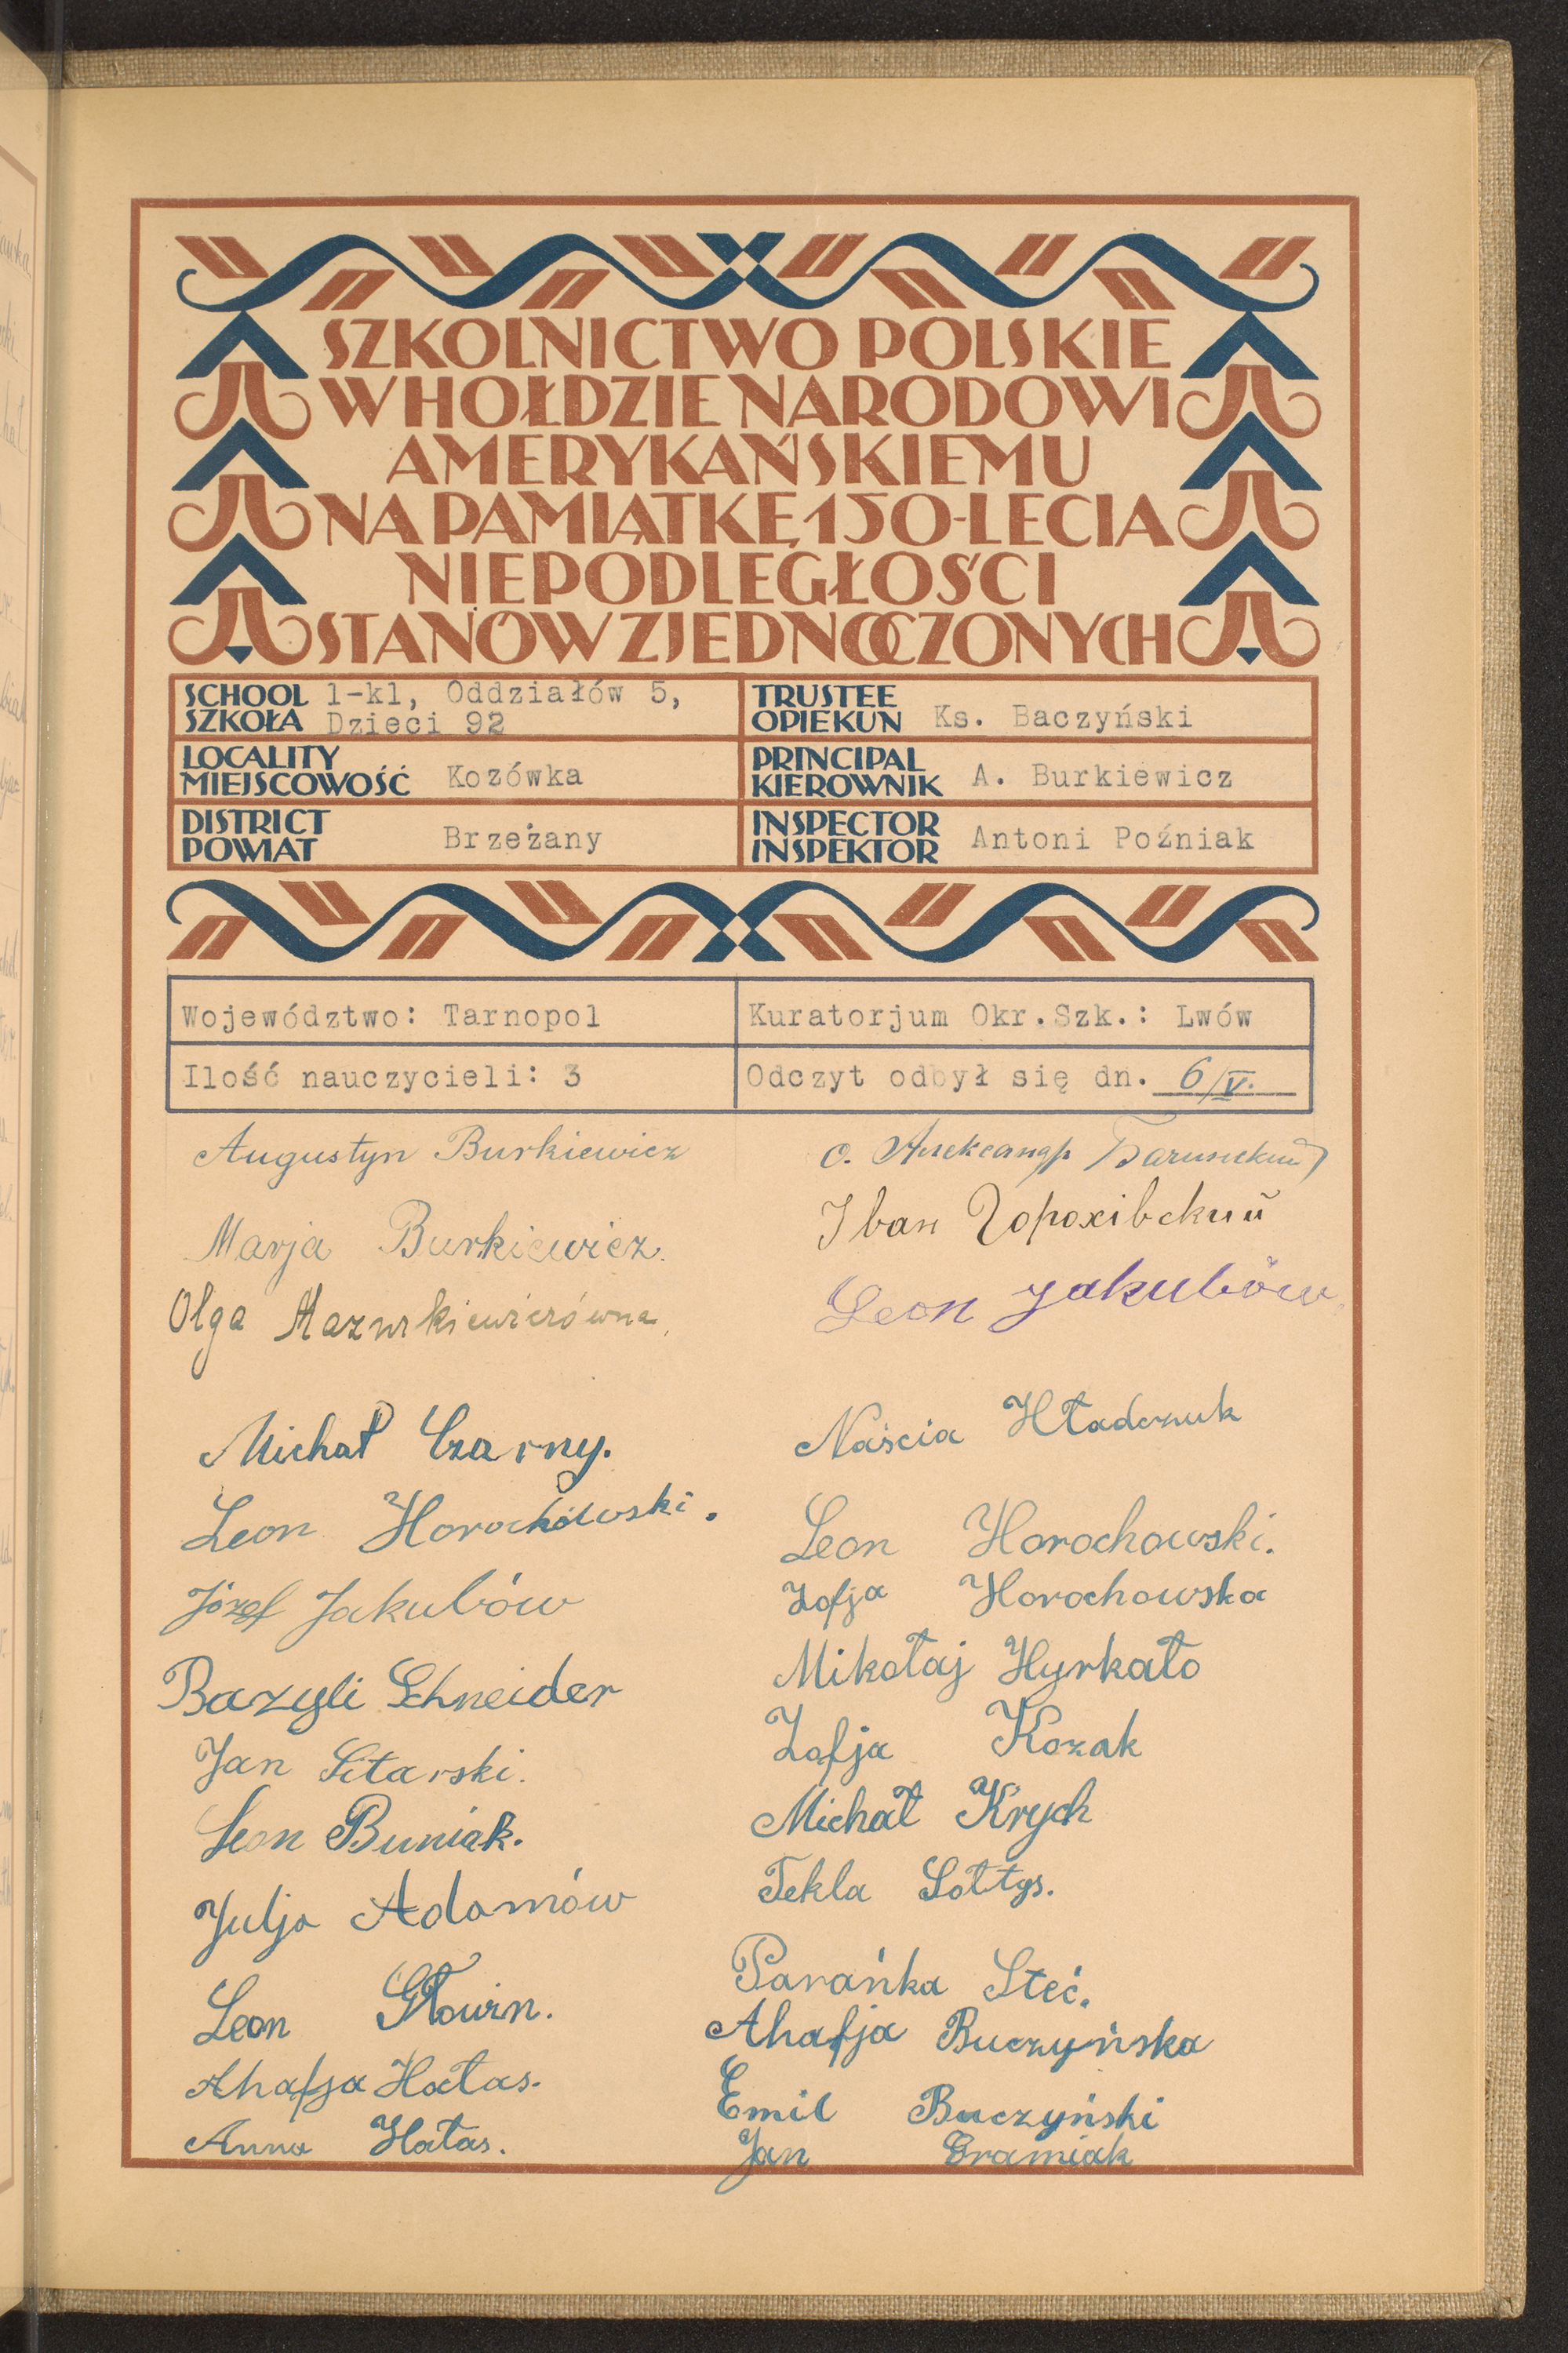 SZKOLNICTWO POLSKIE
W HOŁDZIE NARODOWI
AMERYKAŃSKIEMU
NA PAMIĄTKĘ 150-LECIA
NIEPODLEGŁOŚCI
STANÓW ZJEDNOCZONYCH
SCHOOL
SZKOŁA
1-kl, Oddziałów 5,
Dzieci 92
TRUSTEE
OPIEKUN Ks. Baczyński
LOCALITY
MIEJSCOWOŚĆ Kozówka
PRINCIPAL
KIEROWNIK A. Burkiewicz
DISTRICT
POWIAT Brzeżany
INSPECTOR
INSPEKTOR Antoni Poźniak
Województwo: Tarnopol
Kuratorjum Okr.Szk.: Lwów
Ilość nauczycieli: 3
Odczyt odbył się dn. 6/V.
Augustyn Burkiewicz
Marja Burkiewicz.
Olga Mazurkiewiczówna
Michał Czarny.
Leon Horochowski.
Józef Jakubów
Bazyli Schneider
Jan Sitarski.
Leon Buniak.
Julja Adamów
Leon
Ahafja Hałas.
Anna Hałas.
о. Александр
Іван Горохівский
Leon Jakubów
Naścia Hładczuk
Leon Horochowski.
Zofja Horochowska
Mikołaj Hyrkało
Zofja Kozak
Michał Krych
Tekla Sołtys.
Parańka Steć.
Ahafja Buczyńska
Emil Buczyński
Jan Gramiak